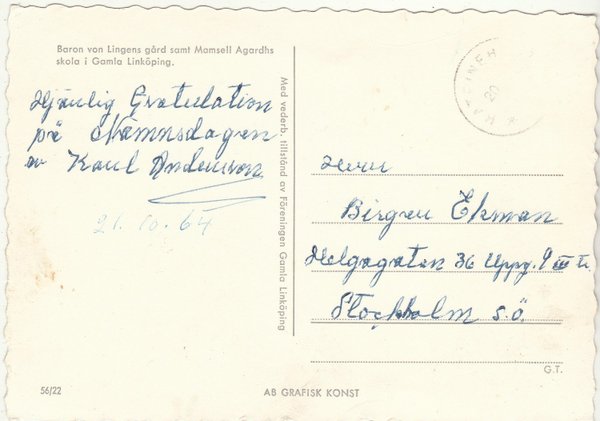 Baron von Lingens gård samt Mamsell Agardhs
skola i Gamla Linköping.
Hjärtlig Gratulation
på Namnsdagen
av Karl Andersson
21. 10. 64
Med vederb. tillstånd av Föreningen Gamla Linköping
20
Herr
Birger Ekman
Helgagatan 36 Uppg. 9 III tr.
Stockholm s.ö.
G.T.
56/22
AB GRAFISK KONST